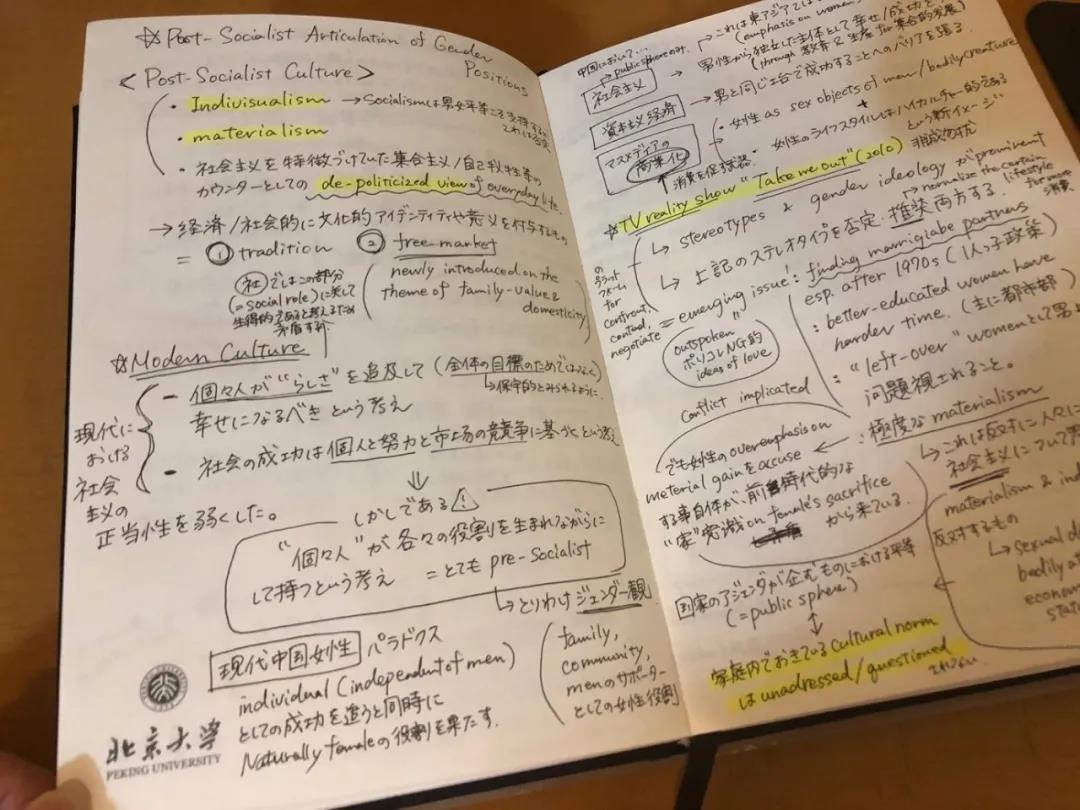 ☆ Post-Socialist Articulation of Gender
Positions
< Post-Socialist Culture >
・ Indivisualism → Socialismは男女平等こそ支持する
これは否定
・ materialism
・ 社会主義を特徴づけていた集合主義/自己犠牲等の
カウンターとしての de-politicized view of everyday life.
→ 経済/社会的に文化的アイデンティティや意義を付与するもの
= ① tradition ② free-market
(社)ではこの部分
(=social role)に関して
生得的であると考えるため
矛盾する
newly introduced on the
theme of family-value &
domesticity
☆ Modern Culture
現代に
おける
社会
主義の
正当性を弱くした。
- 個々人が"らしさ"を追及して (全体の目標のためではなく)
↳保守的とみられるように
幸せになるべき という考え
- 社会の成功は個人と努力と市場の競争に基づくという考え
⇓
しかしである ⚠
"個々人"が各々の役割を生まれながらに
して持つという考え = とても pre-Socialist
↳とりわけジェンダー観
現代中国女性 パラドクス
individual (independent of men)
としての成功を追うと同時に
Naturally femaleの役割を果たす.
family,
community,
menのサポーター
としての女性役割
北京大学
PEKING UNIVERSITY
中国において...
→ public sphereのみ.
これは東アジアでは
(emphasis on women
社会主義 → 男性から独立した主体として幸せ/成功を
(through 教育 & 生産 for 集合的発展)
資本主義経済 → 男と同じ土台で成功することへのバリアを張る.
マスメディアの
商業化
・ 女性 as sex objects of men/bodily creature
+
・ 女性のライフスタイルはハイカルチャー的である
という新イメージ
↑ 消費を促す装置.
☆ TV reality show "Take me out" (2010) 非誠勿扰
↳ stereotypes & gender ideology が prominent
→ normalize the certain
lifestyle
for more
消費
↳ 上記のステレオタイプを否定・推奨両方する
のプラット
フォーム
for
confront,
contend,
negotiate
= emerging issue: finding marrigiabe partners
esp. after 1970s (1人っ子政策)
: better-educated women have
harder time. (主に都市部)
: "left-over" womenとして
問題視されること。
: 極度な materialism
outspoken
ポリコレNG的
ideas of love
conflict implicated
でも女性のoveremphasis on
meterial gainをaccuse
する事自体が、前時代的な
"家"意識 on female's sacrifice
から来ている.
↳ これは反対に人々に
社会主義について
materialism &
反対するもの
↳ sexual
bodily
econom
stat
国家のアジェンダが企むものにおける平等
(=public sphere)
↕
家庭内でおきているcultural norm
は unadressed/questioned